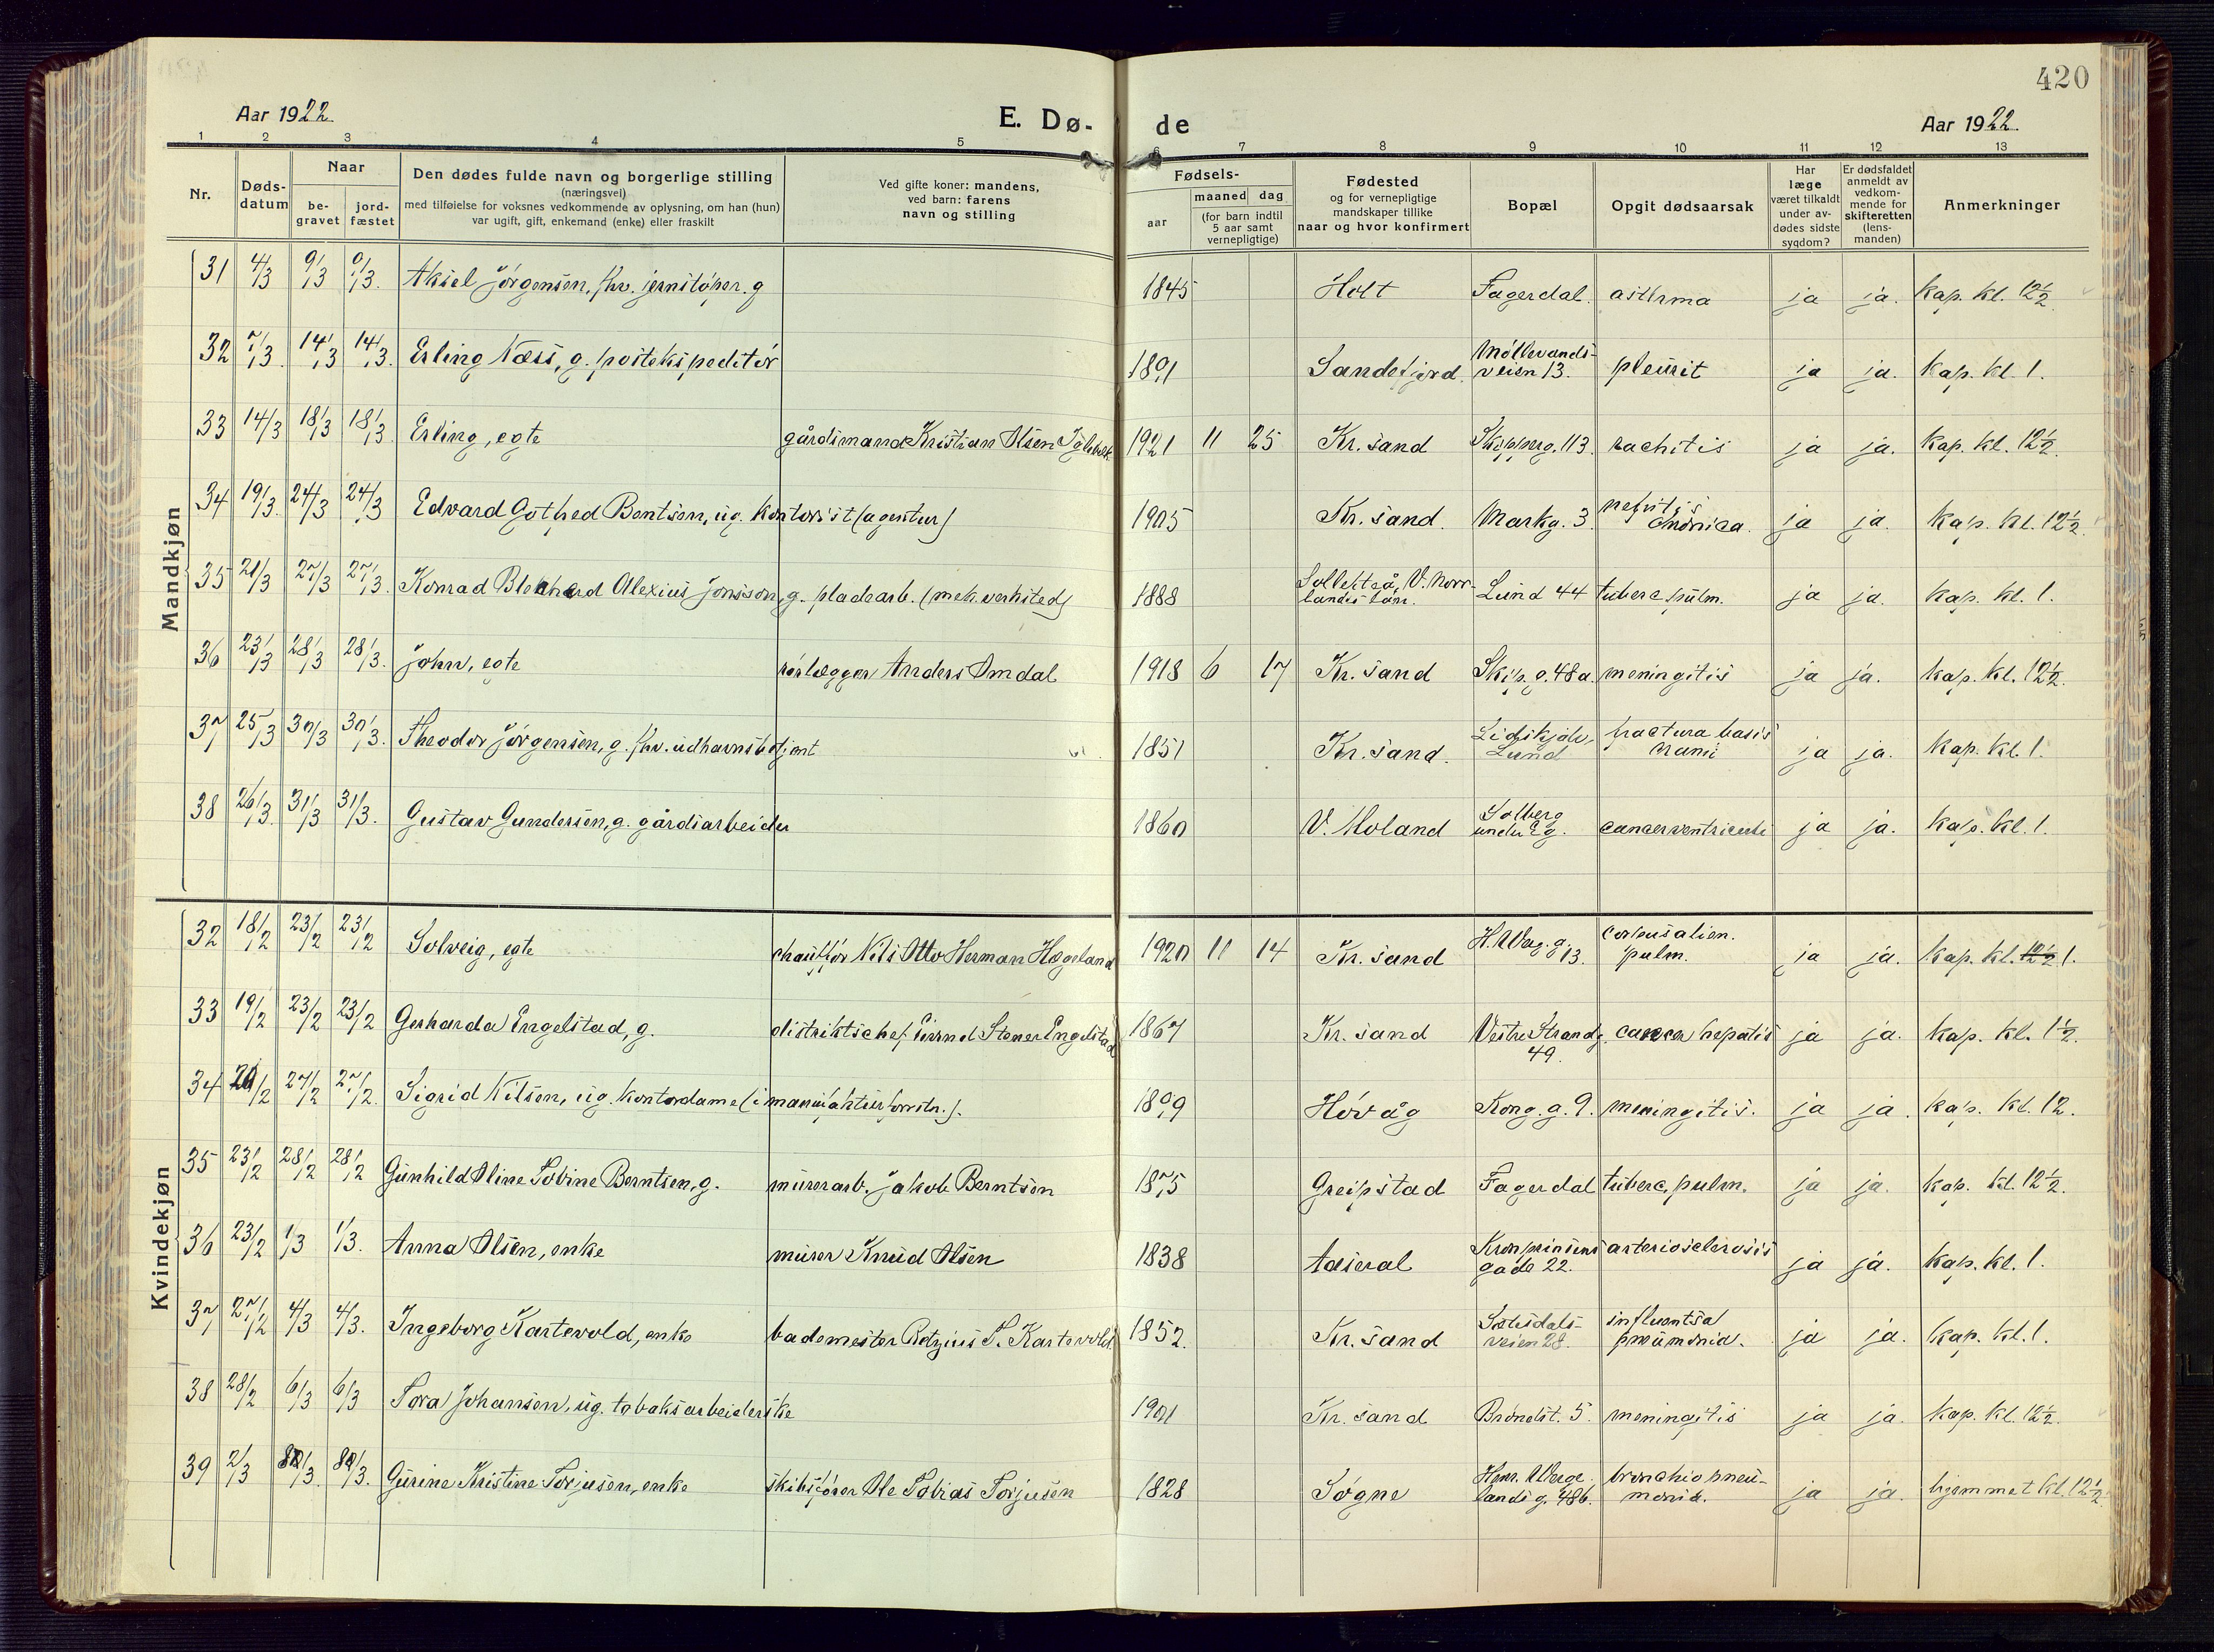 420
Aar 1922
E. Dø-
de
Aar 1922
1 2 3 4 5 6 7 8 9 10 11 12 13
Nr.
Døds-
datum
Naar
be-
gravet
jord-
fæstet
Den dødes fulde navn og borgerlige stilling
(næringsvei)
med tilføielse for voksnes vedkommende av oplysning, om han (hun)
var ugift, gift, enkemand (enke) eller fraskilt
Ved gifte koner: mandens,
ved barn: farens
navn og stilling
Fødsels-
aar
maaned dag
(for barn indtil
5 aar samt
vernepligtige)
Fødested
og for vernepligtige
mandskaper tillike
naar og hvor konfirmert
Bopæl
Opgit dødsaarsak
Har
læge
været tilkaldt
under av-
dødes sidste
sygdom?
Er dødsfaldet
anmeldt av
vedkom-
mende for
skifteretten
(lens-
manden)
Anmerkninger
Mandkjøn
31 4/3 9/3 9/3. Aksel Jörgensen, fhv. jernstöper. g 1845 Holt Fagerdal. asthma ja ja. kap. kl. 12½
32 7/3 14/3 14/3. Erling Næss, g. postekspeditör 1891 Sandefjord. Möllevands-
veien 13. pleurit ja ja. kap. kl. 1.
33 14/3 18/3 18/3. Erling, egte gårdsmand Kristian Olsen 1921 11 25 Kr. sand Skipperg. 113 rachitis ja ja. kap. kl. 12½.
34 19/3. 24/3 24/3 Edvard Gothed Bentsen, ug. kontorist (agentur) 1905 Kr. sand. Markg. 3 nefritis
chronica. ja ja. kap. kl. 12½
35 21/3 27/3 27/3. Konrad Alexius Jonsson, g. pladearb. (mek. verksted) 1888 Sollefteå, V. Norr-
lands län. Lund 44 tuberc. pulm. ja ja. kap. kl. 1.
36 23/3 28/3 28/3. John, egte rörlægger Anders Omdal 1918 6 17 Kr. sand Skip. g. 48a. meningitis ja ja. kap. kl. 12½.
37 25/3 30/3 30/3. Theodor Jörgensen, g. fhv. udhavnsbetjent 1851 Kr. sand. Lund fractura basis
cranii ja ja. kap. kl. 1.
38 26/3. 31/3 31/3. Gustav Gundersen, g. gårdsarbeider 1860 V. Moland Solberg
under Eg. cancer ventriculi ja ja. kap. kl. 1.
Kvindekjøn
32 18/2 23/2 23/2 Solveig, egte chaufför Nils Otto Herman Hægeland 1920 11 14 Kr. sand H. Werg. g.
13. pulm. ja ja. kap. kl. 12½ 1.
33 19/2 23/2 23/2 Gerharda Engelstad, g. distriktschef Eivind Stener Engelstad 1867 Kr. sand Vestre Strandg.
49. cancer hepatis ja ja. kap. kl. 1½.
34 20/2 27/2 27/2. Sigrid Nilsen, ug. kontordame (i manufakturforretn.). 1899 Hövåg Kong. g. 9. meningitis. ja ja. kap. kl. 12.
35 23/2 28/2 28/2 Gunhild Oline Tobine Berntsen, g. murerarb. Jakob Berntsen 1875 Greipstad Fagerdal tuberc. pulm. ja ja. kap. kl. 12½.
36 23/2 1/3 1/3. Anna Olsen, enke murer Knud Olsen 1838 Aaseral Kronprinsens
gade 22. arteriosclerosis ja ja. kap. kl. 1.
37 27/2 4/3 4/3. Ingeborg Kartevold, enke bademester Retzius T. Kartevold. 1852. Kr. sand Setesdals-
veien 28. influentsa
pneumonia. ja ja. kap. kl. 1.
38 28/2 6/3 6/3 Tora Johansen, ug. tobaksarbeiderske 1901 Kr. sand Bröndst. 5. meningitis ja ja. kap. kl. 12½.
39 2/3 8/3. 8/3. Gurine Kristine Torjusen, enke skibsförer Ole Tobias Torjusen 1828 Sögne Henr. Werge-
lands g. 48b. bronchiopneu-
monia. ja ja. hjemmet kl. 12½